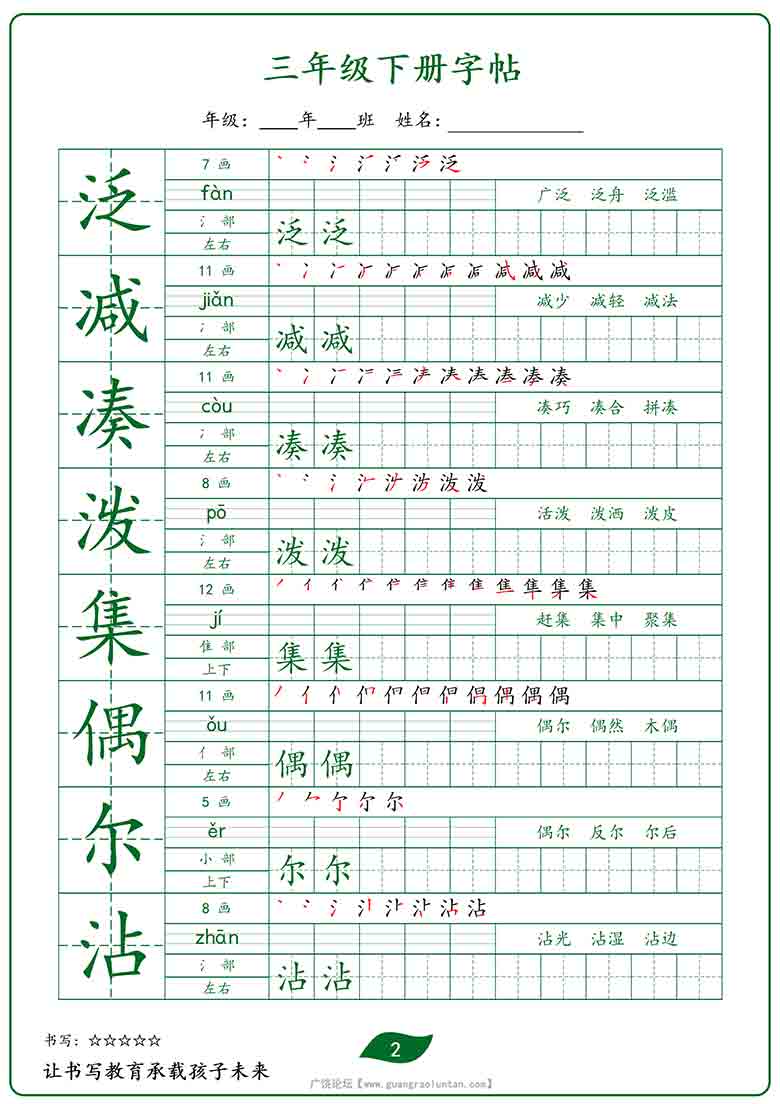 三年级下册字帖
年级：____年____班 姓名：____________
泛
7 画
fàn
广泛 泛舟 泛滥
氵 部
左右
泛 泛
减
11 画
jiǎn
减少 减轻 减法
冫 部
左右
减 减
凑
11 画
còu
凑巧 凑合 拼凑
冫 部
左右
凑 凑
泼
8 画
pō
活泼 泼洒 泼皮
氵 部
左右
泼 泼
集
12 画
jí
赶集 集中 聚集
隹 部
上下
集 集
偶
11 画
ǒu
偶尔 偶然 木偶
亻 部
左右
偶 偶
尔
5 画
ěr
偶尔 反尔 尔后
小 部
上下
尔 尔
沾
8 画
zhān
沾光 沾湿 沾边
氵 部
左右
沾 沾
书写：☆☆☆☆☆
让书写教育承载孩子未来
2
广饶论坛【www.guangraoluntan.com】